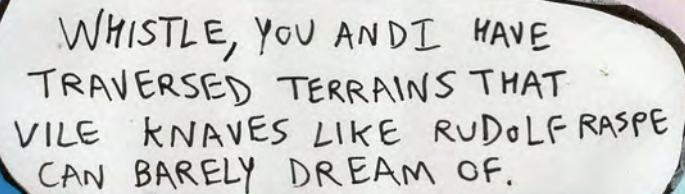 WHISTLE, YOU AND I HAVE
TRAVERSED TERRAINS THAT
VILE KNAVES LIKE RUDOLF RASPE
CAN BARELY DREAM OF.